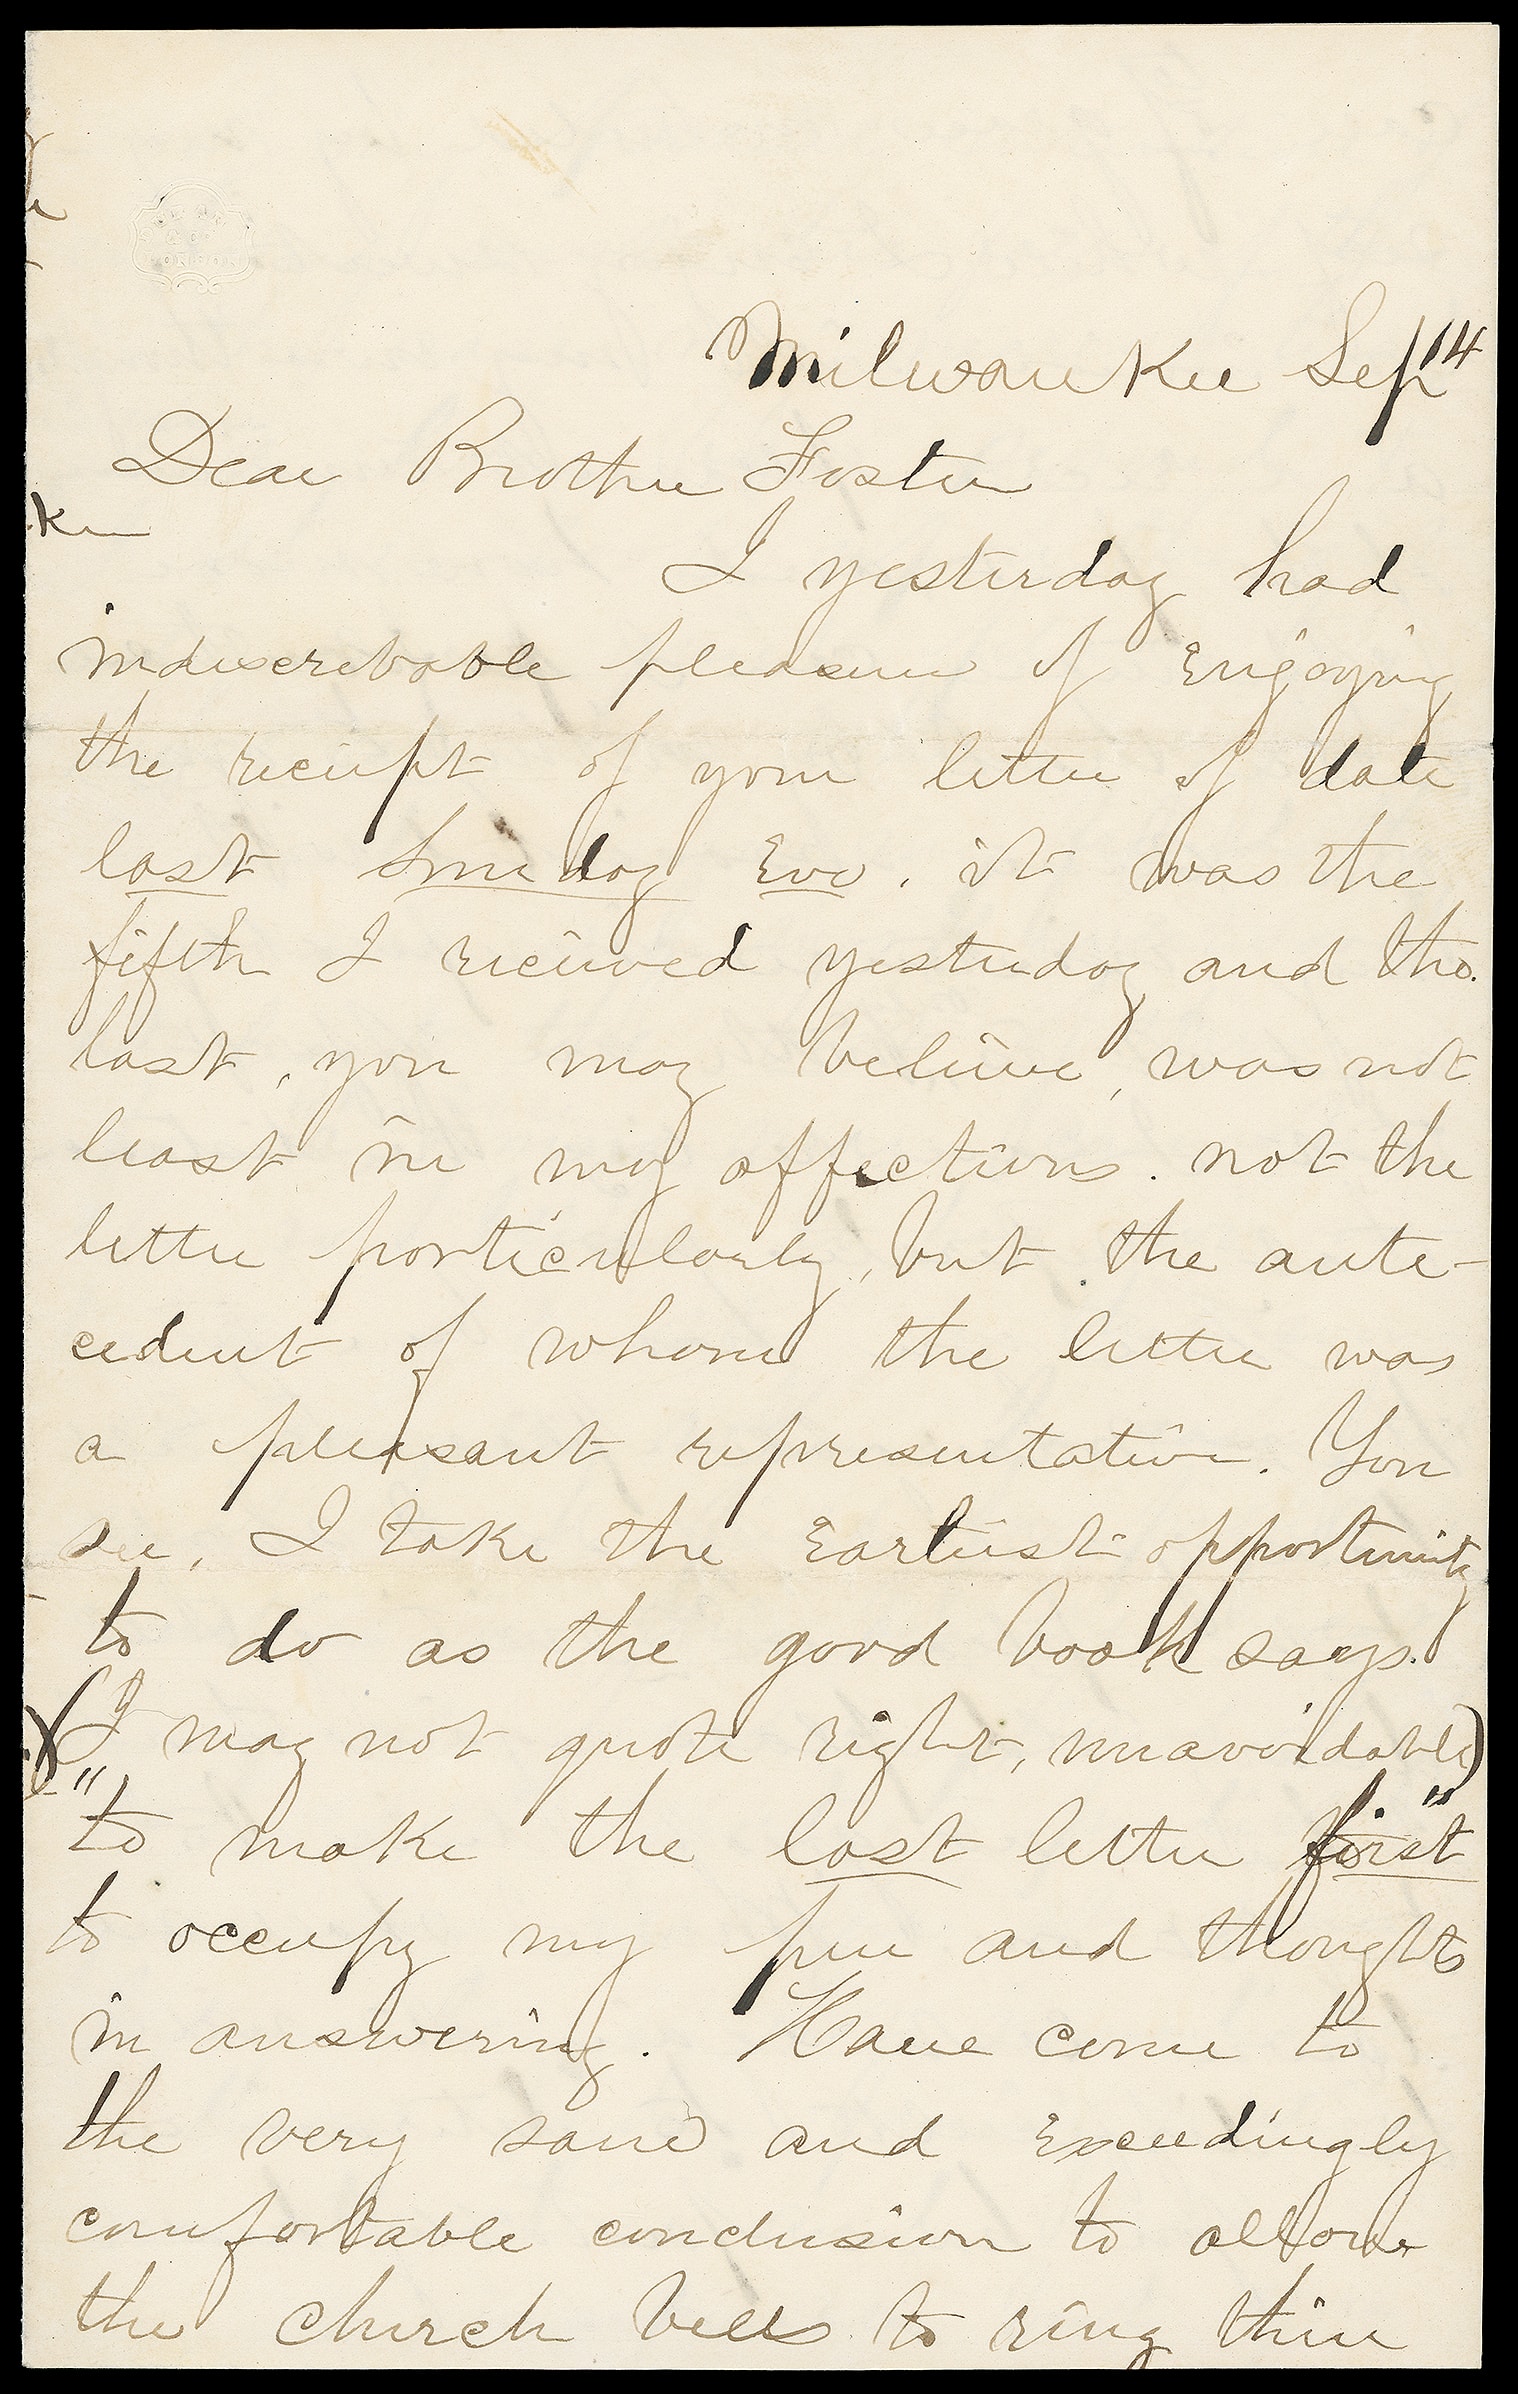 Milwaukee Sep 14
Dear Brother Foster
I yesterday had
indiscribable pleasure of Enjoying
the reciept of your letter of date
last Sunday Eve. it was the
fifth I recieved yesterday and the
last, you may believe, was not
least in my affections. not the
letter particularly, but the ante-
cedent of whom the letter was
a pleasant representative. You
see, I take the Earliest opportunity
to do as the good book says.
(I may not quote right, unavoidable)
"to make the last letter first"
to occupy my pen and thoughts
in answering. Have come to
the very sane and Exceedingly
comfortable conclusion to allow
the church bells to ring their